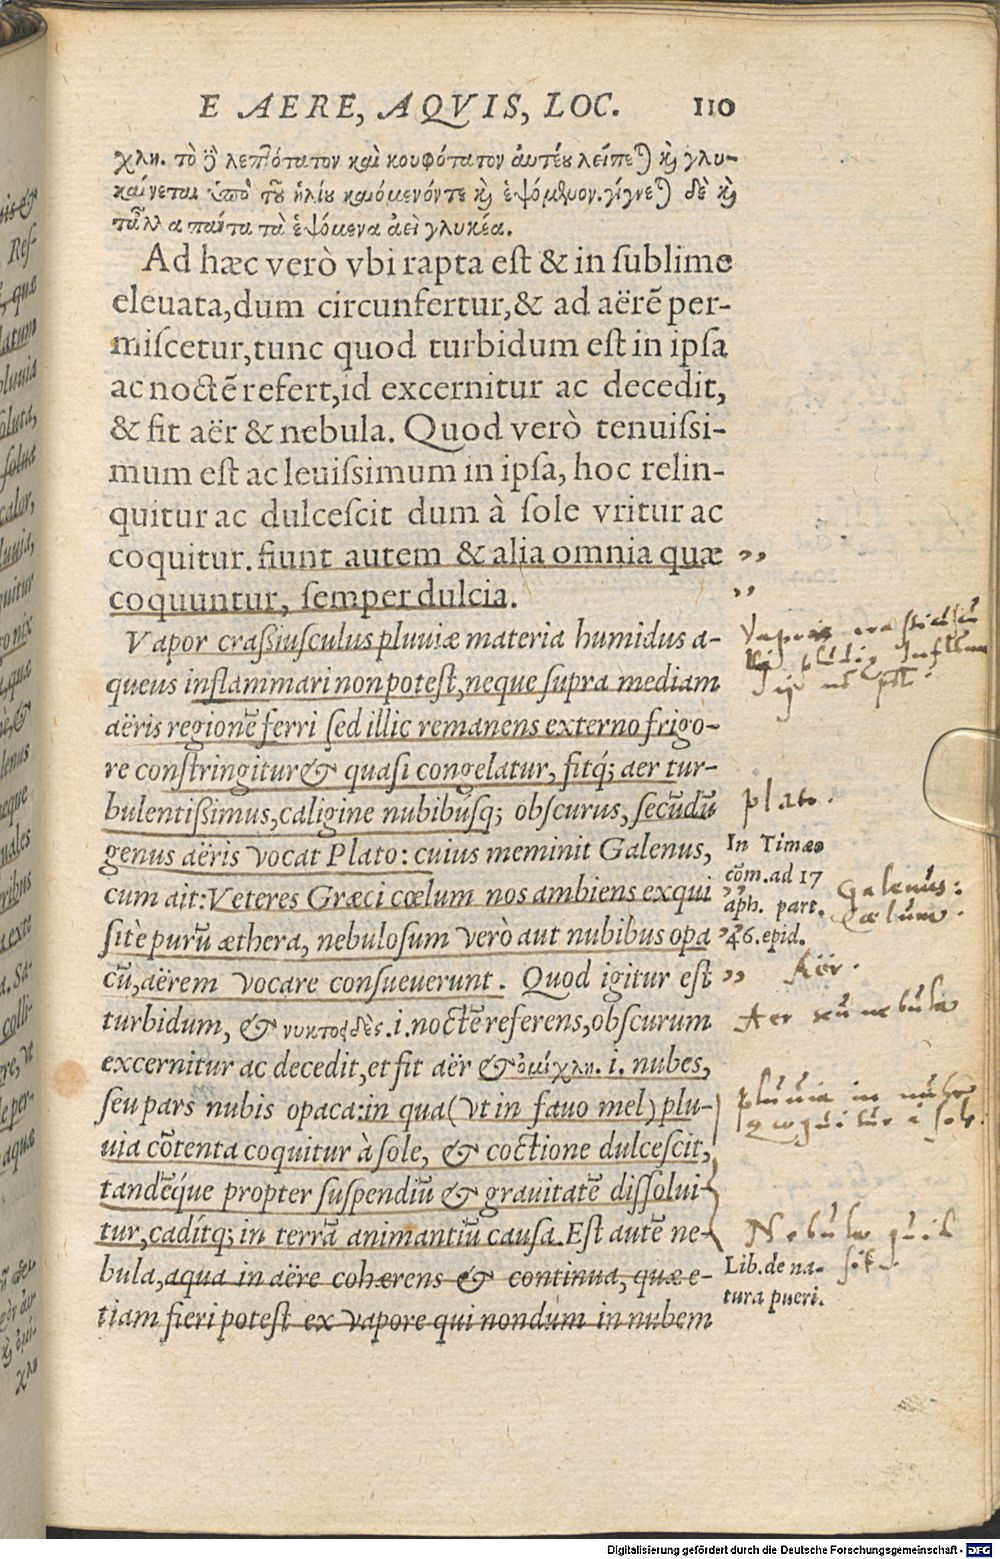 E AERE, AQVIS, LOC. 110
χλη. τὸ δὲ λεπτότατον καὶ κουφότατον αὐτέου λείπεται καὶ γλυ-
καίνεται ὑπὸ τοῦ ἡλίου καιόμενόν τε καὶ ἑψόμενον. γίγνεται δὲ καὶ
τἆλλα πάντα τὰ ἑψόμενα ἀεὶ γλυκέα.
Ad hæc verò vbi rapta eſt & in ſublime
eleuata, dum circunfertur, & ad aërē per-
miſcetur, tunc quod turbidum eſt in ipſa
ac noctē refert, id excernitur ac decedit,
& fit aër & nebula. Quod verò tenuiſsi-
mum eſt ac leuiſsimum in ipſa, hoc relin-
quitur ac dulceſcit dum à ſole vritur ac
coquitur. fiunt autem & alia omnia quæ ,,
coquuntur, ſemper dulcia. ,,
Vapor craßiuſculus pluuiæ materia humidus a-
queus inflammari non poteſt, neque ſupra mediam
aëris regionē ferri ſed illic remanens externo frigo-
re conſtringitur & quaſi congelatur, fitq; aer tur-
bulentißimus, caligine nubibúſq; obſcurus, ſecūdū
plato.
genus aëris vocat Plato: cuius meminit Galenus,
In Timæo
cum ait: Veteres Græci cœlum nos ambiens exqui
cōm. ad 17
Galenus:
ſitè purū æthera, nebuloſum verò aut nubibus opa
aph. part.
Cœlum.
46. epid.
cū, aërem vocare conſueuerunt. Quod igitur eſt ,,
Aër.
turbidum, & νυκτοειδὲς .i. noctē referens, obſcurum
Aer seu nebula
excernitur ac decedit, et fit aër & ὀμίχλη. i. nubes,
ſeu pars nubis opaca: in qua (vt in fauo mel) plu-
pluuia in nube
uia cōtenta coquitur à ſole, & coctione dulceſcit,
coquitur a sole.
tandēque propter ſuſpendiū & grauitatē diſſolui-
tur, cadítq; in terrā animantiū cauſa. Eſt autē ne-
Nebula quid
sit.
bula, aqua in aëre cohærens & continua, quæ e-
Lib. de na-
tiam fieri poteſt ex vapore qui nondum in nubem
tura pueri.
Digitalisierung gefördert durch die Deutsche Forschungsgemeinschaft - DFG